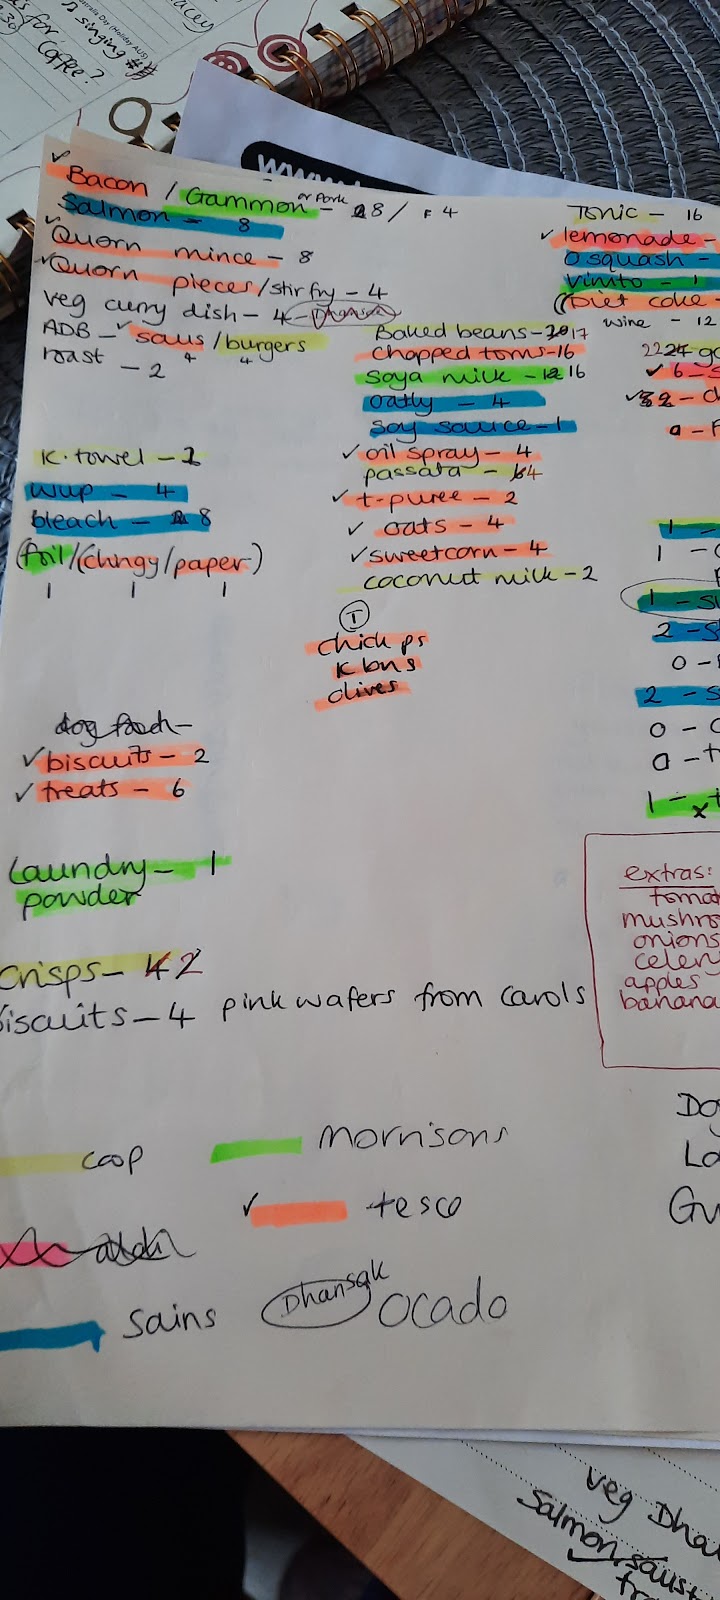 for
Coffee?
singing
Australia Day (Holiday AUS)
www
Bacon / Gammon or Pork - 8 / F 4
Salmon - 8
Quorn mince - 8
Quorn pieces/stir fry - 4
veg curry dish - 4 - Dhansak
ADB - saus / burgers
4 4
roast - 2
K. towel - 2
wup - 4
bleach - 8
(foil/(clingy/paper)
1 1 1
dog food -
biscuits - 2
treats - 6
Laundry - 1
powder
crisps - 42
iscuits - 4 pink wafers from carols
Baked beans - 17
chopped toms - 16
Soya milk - 16
oatly - 4
soy sauce - 1
oil spray - 4
passata - 4
t-puree - 2
oats - 4
sweetcorn - 4
coconut milk - 2
T
chick ps
K bns
olives
Tonic - 16
lemonade -
O squash -
Vimto - 1
(Diet coke -
wine - 12
6 - s
1 -
1 -
1 - s
2 - s
0 -
2 - s
0 - c
0 - t
1 - x t
extras:
tomat
mushro
onions
celery
apples
banana
coop
morrisons
tesco
aldi
Sains
Dhansak
ocado
Do
Lo
Gu
veg Dha
Salmon, saus
tr